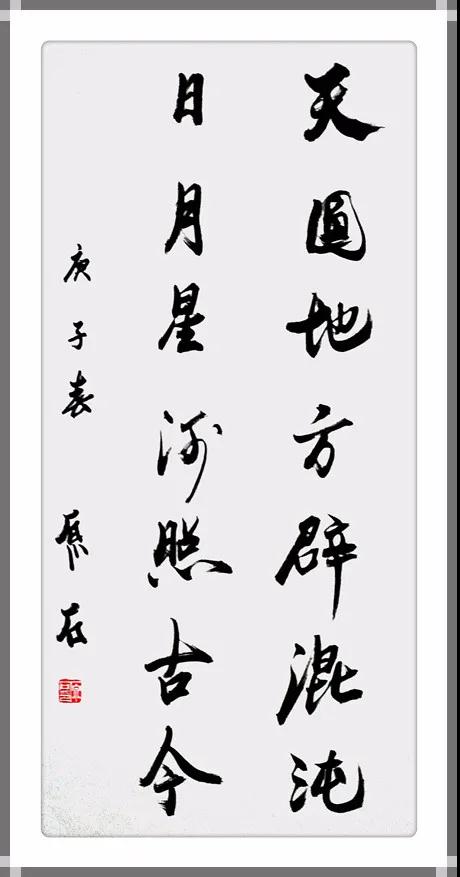 天圓地方辟混沌
日月星河照古今
庚子春